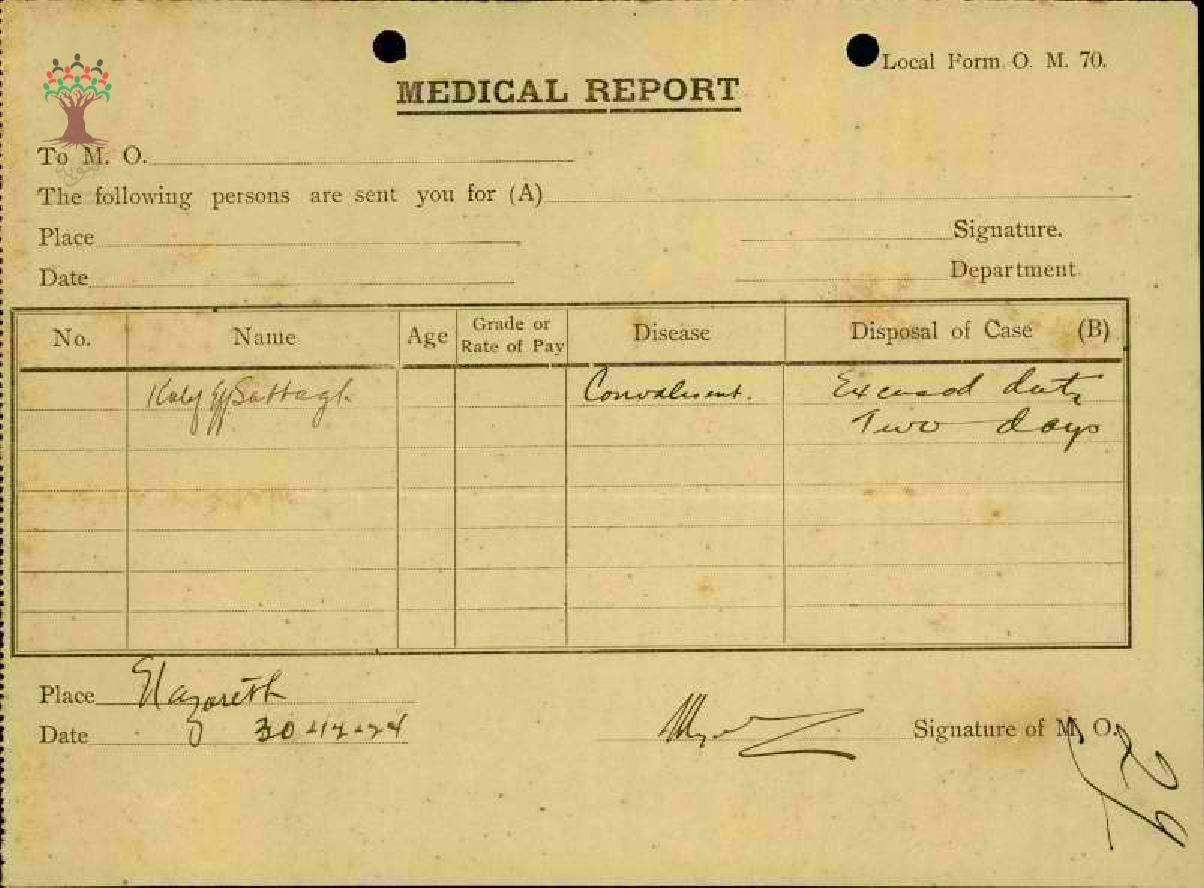 Local Form O. M. 70.
MEDICAL REPORT
To M. O.
The following persons are sent you for (A)
Place Signature.
Date Department
No. Name Age Grade or Rate of Pay Disease Disposal of Case (B)
Convalescent. Excused duty
Two days
Place Nazareth
Date 30-12-24 Signature of M. O.